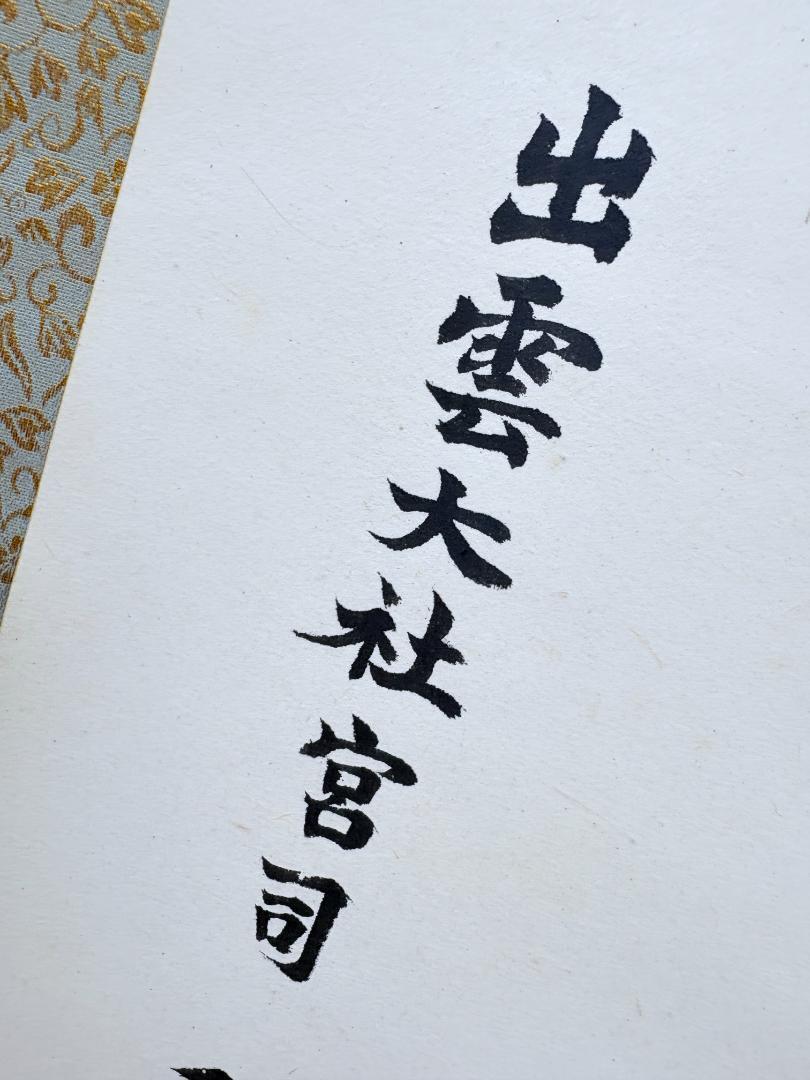 出雲大社宮司